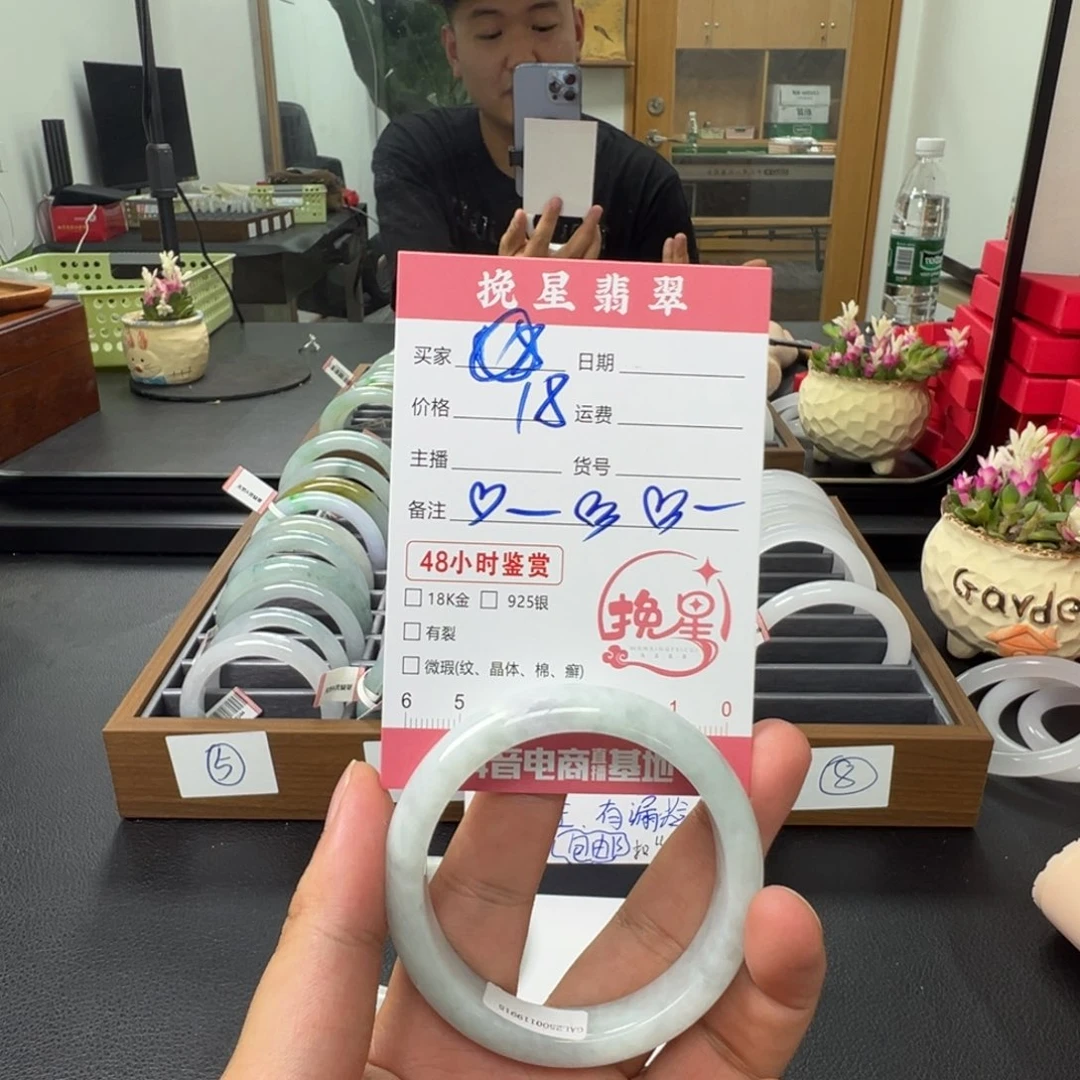 挽星翡翠
买家 日期
价格 18 运费
主播 货号
备注
48小时鉴赏
18K金 925银
有裂
微瑕(纹、晶体、棉、癣)
挽星
6 5 1 0
音电商直播基地
有漏
包邮
5
8
GAL2500119918
Garde